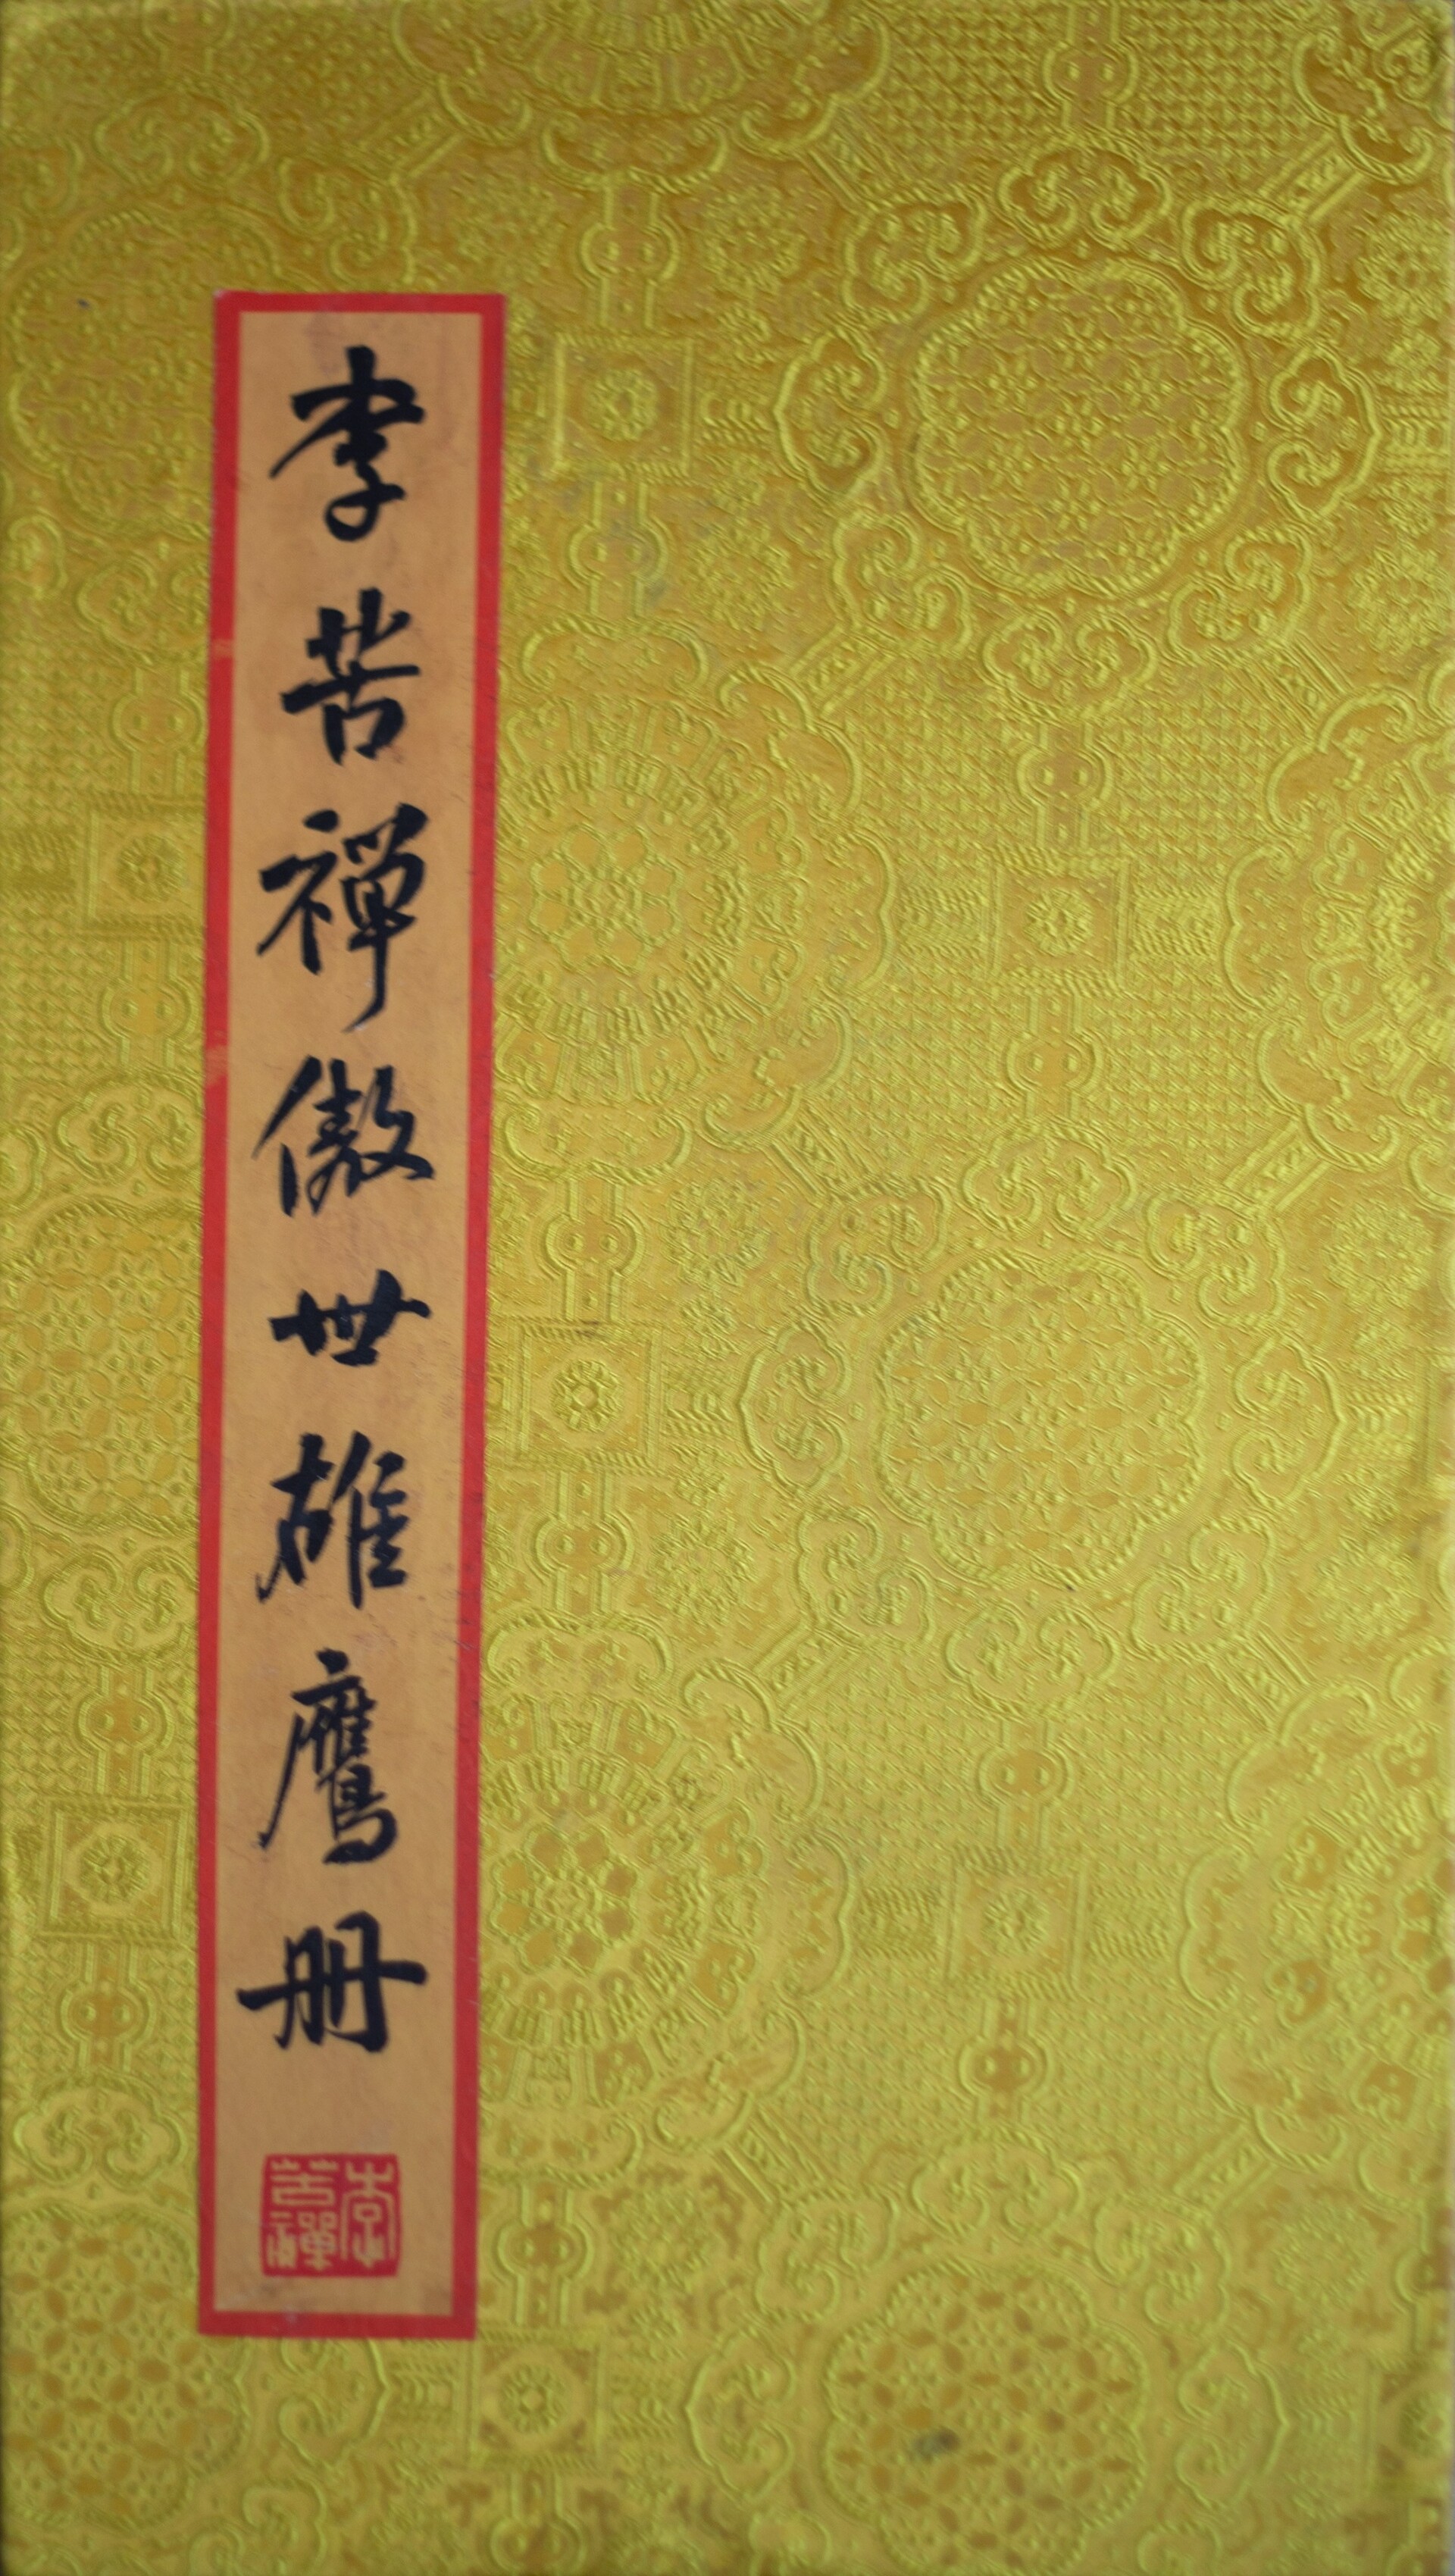 李苦禪傲世雄鷹册
李苦禪